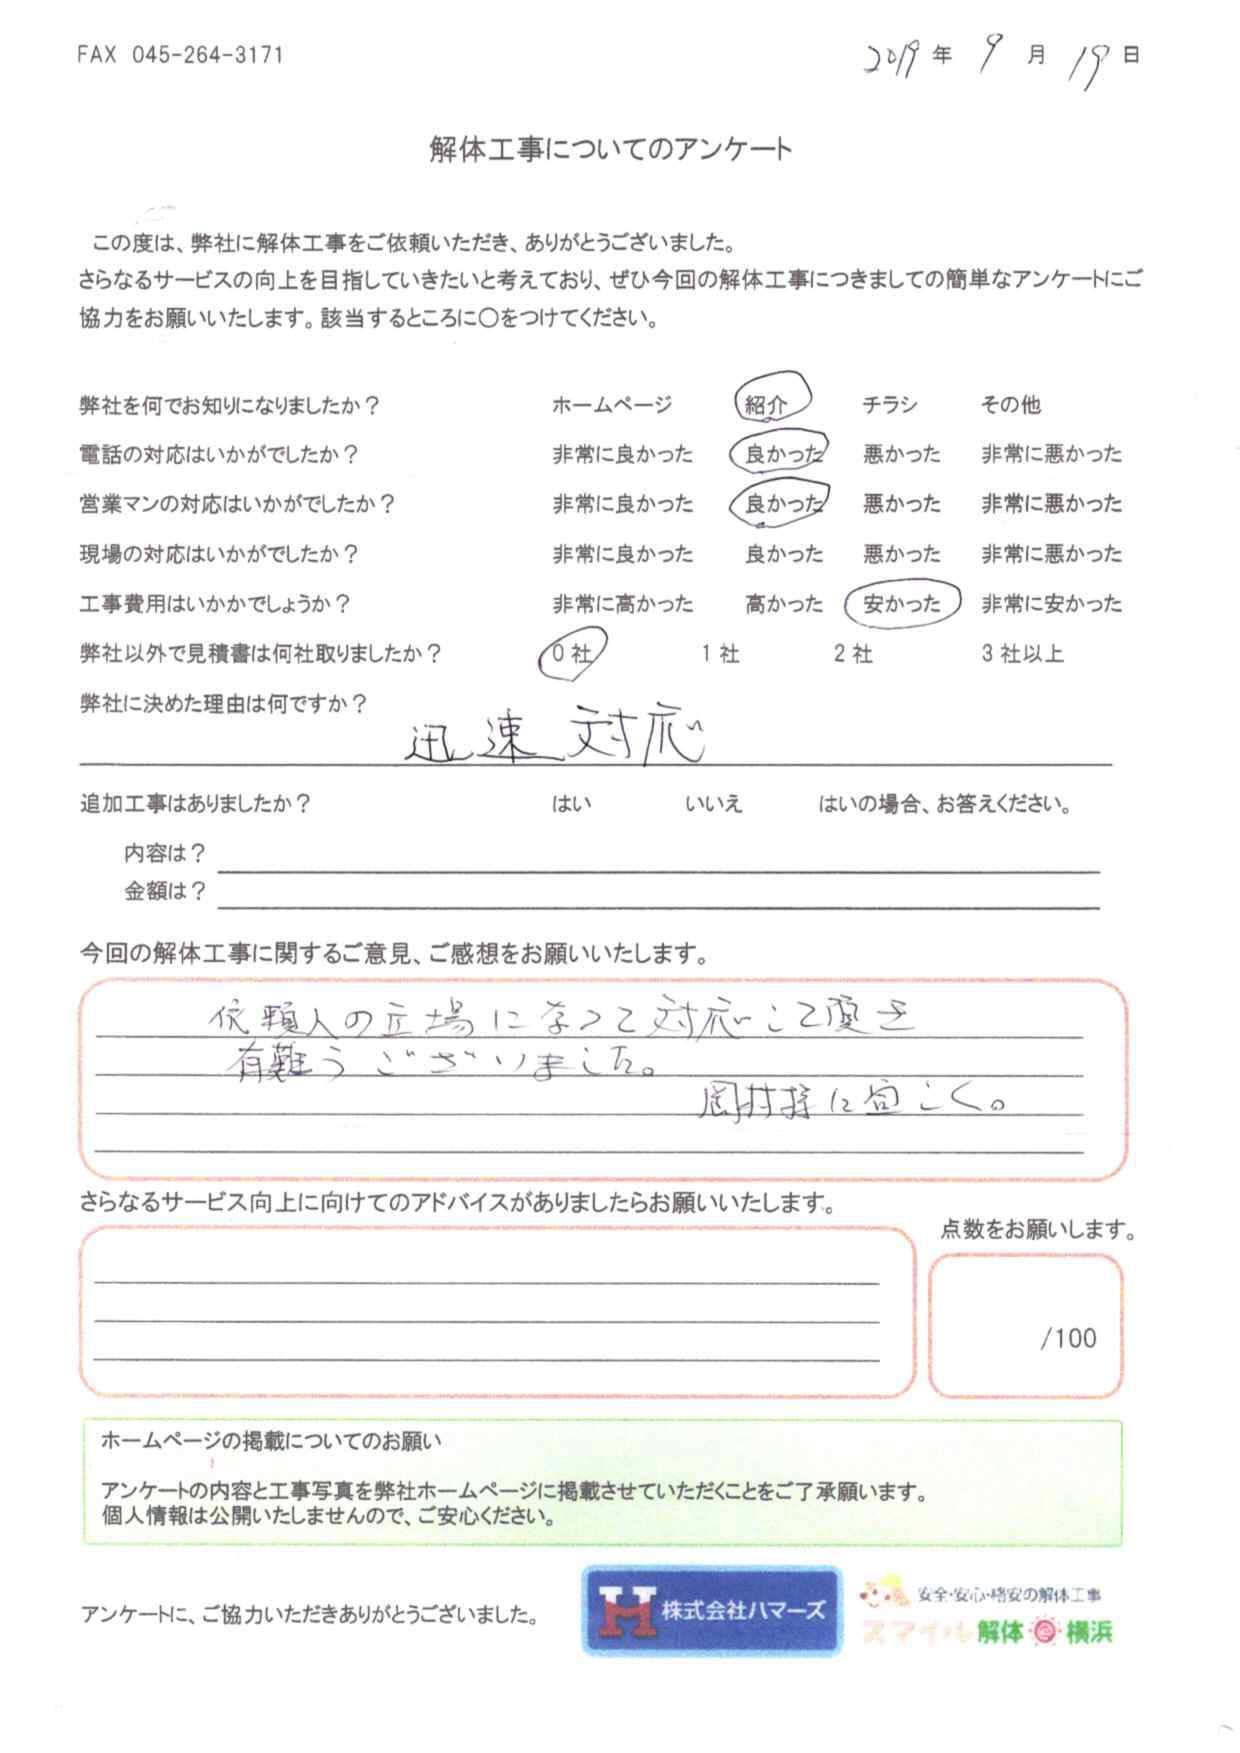 FAX 045-264-3171
2019 年 9 月 19 日
解体工事についてのアンケート
この度は、弊社に解体工事をご依頼いただき、ありがとうございました。
さらなるサービスの向上を目指していきたいと考えており、ぜひ今回の解体工事につきましての簡単なアンケートにご
協力をお願いいたします。該当するところに〇をつけてください。
弊社を何でお知りになりましたか？ ホームページ 紹介 チラシ その他
電話の対応はいかがでしたか？ 非常に良かった 良かった 悪かった 非常に悪かった
営業マンの対応はいかがでしたか？ 非常に良かった 良かった 悪かった 非常に悪かった
現場の対応はいかがでしたか？ 非常に良かった 良かった 悪かった 非常に悪かった
工事費用はいかかでしょうか？ 非常に高かった 高かった 安かった 非常に安かった
弊社以外で見積書は何社取りましたか？ 0 社 1 社 2 社 3 社以上
弊社に決めた理由は何ですか？
迅速 対応
追加工事はありましたか？ はい いいえ はいの場合、お答えください。
内容は？
金額は？
今回の解体工事に関するご意見、ご感想をお願いいたします。
依頼人の立場になって対応して頂き
有難うございました。
岡村様に宜しく。
さらなるサービス向上に向けてのアドバイスがありましたらお願いいたします。
点数をお願いします。
/100
ホームページの掲載についてのお願い
アンケートの内容と工事写真を弊社ホームページに掲載させていただくことをご了承願います。
個人情報は公開いたしませんので、ご安心ください。
アンケートに、ご協力いただきありがとうございました。
H 株式会社ハマーズ
安全・安心・格安の解体工事
スマイル解体 横浜